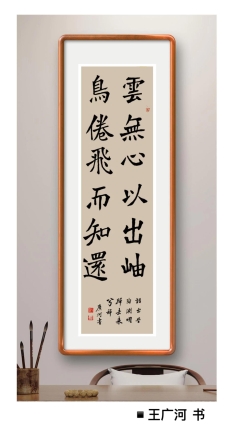 雲無心以出岫
鳥倦飛而知還
■ 王广河 书